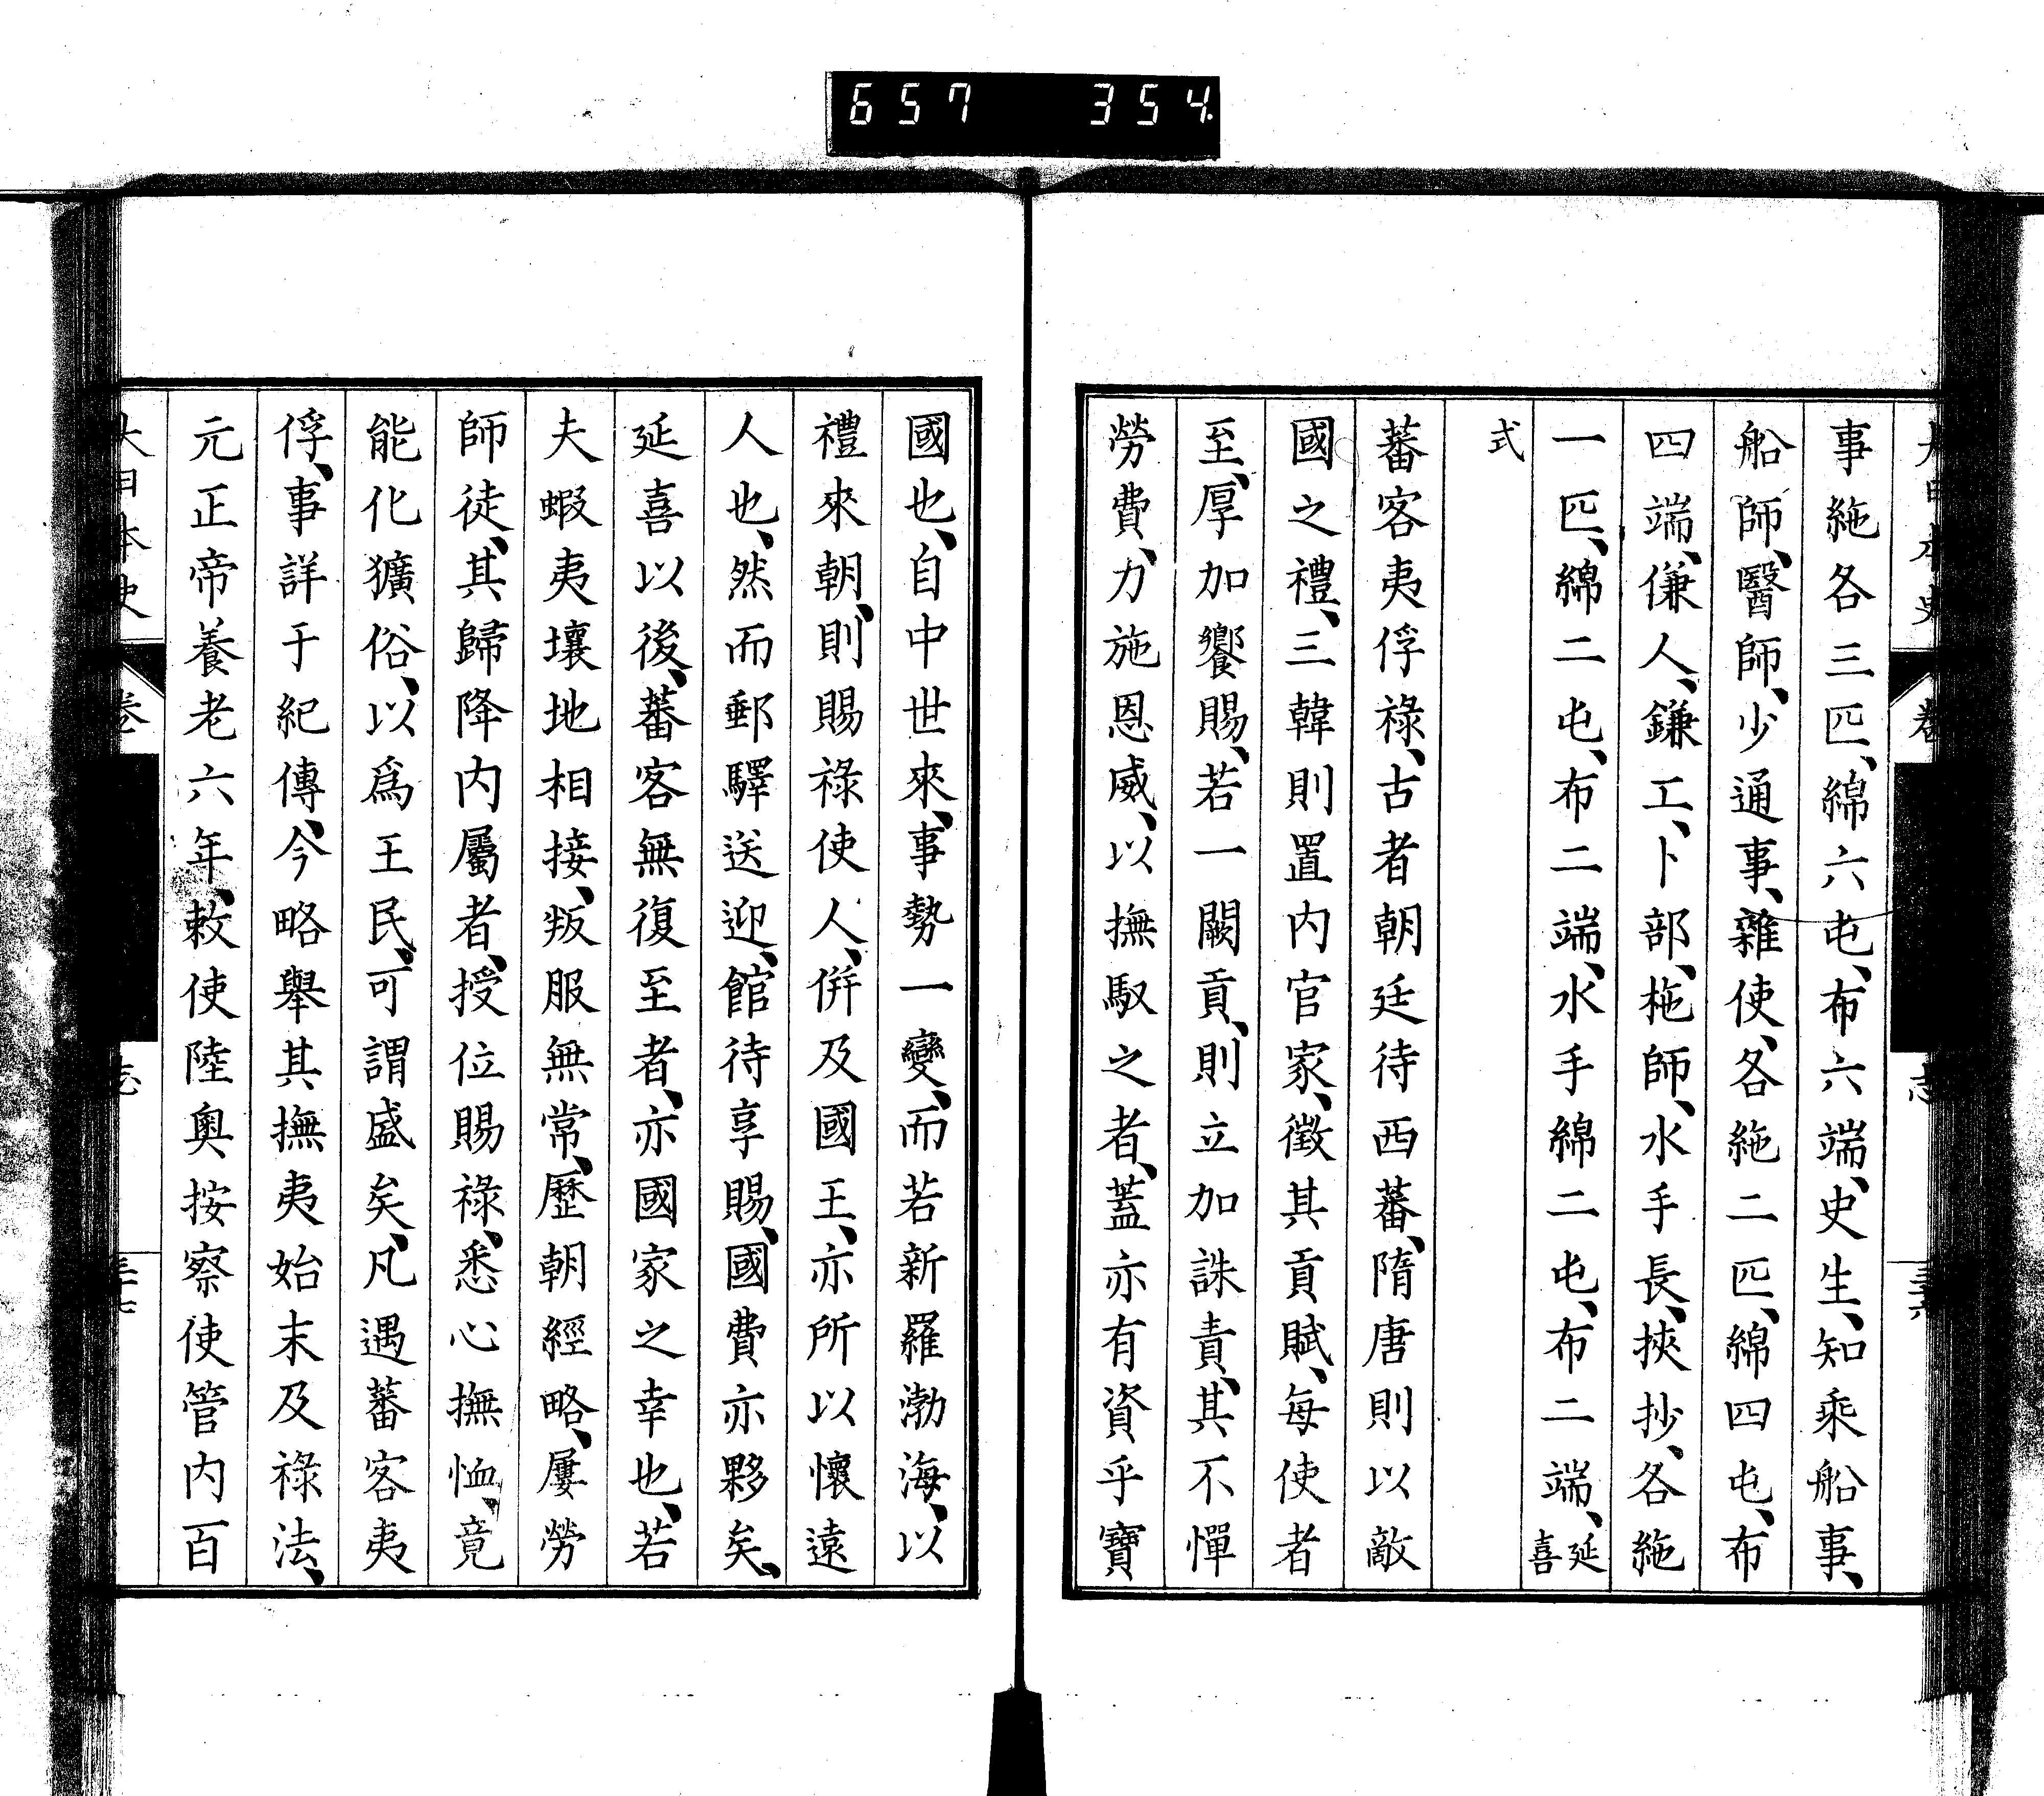 657 354
事絁各三匹、綿六屯、布六端、史生、知乘船事、
船師、醫師、少通事、雜使、各絁二匹、綿四屯、布
四端、傔人、鎌工、卜部、柂師、水手長、挾抄、各絁
一匹、綿二屯、布二端、水手綿二屯、布二端、延喜
式
蕃客夷俘祿、古者朝廷待西蕃、隋唐則以敵
國之禮、三韓則置内官家、徵其貢賦、每使者
至、厚加饗賜、若一闕貢、則立加誅責、其不憚
勞費、力施恩威、以撫馭之者、蓋亦有資乎寶
國也、自中世來、事勢一變、而若新羅渤海、以
禮來朝、則賜祿使人、倂及國王、亦所以懷遠
人也、然而郵驛送迎、館待享賜、國費亦夥矣、
延喜以後、蕃客無復至者、亦國家之幸也、若
夫蝦夷壤地相接、叛服無常、歷朝經略、屢勞
師徒、其歸降内屬者、授位賜祿、悉心撫恤、竟
能化獷俗、以爲王民、可謂盛矣、凡遇蕃客夷
俘、事詳于紀傳、今略舉其撫夷始末及祿法、
元正帝養老六年、敕使陸奧按察使管内百
大日本史 卷 志 三十七